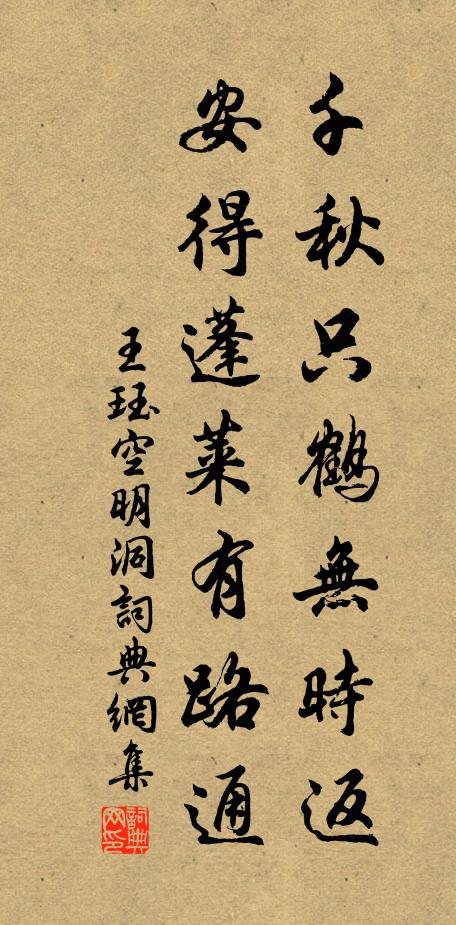 千秋只鶴無時返
安得蓬萊有路通
王珏空明洞詞典網集
詞典网印